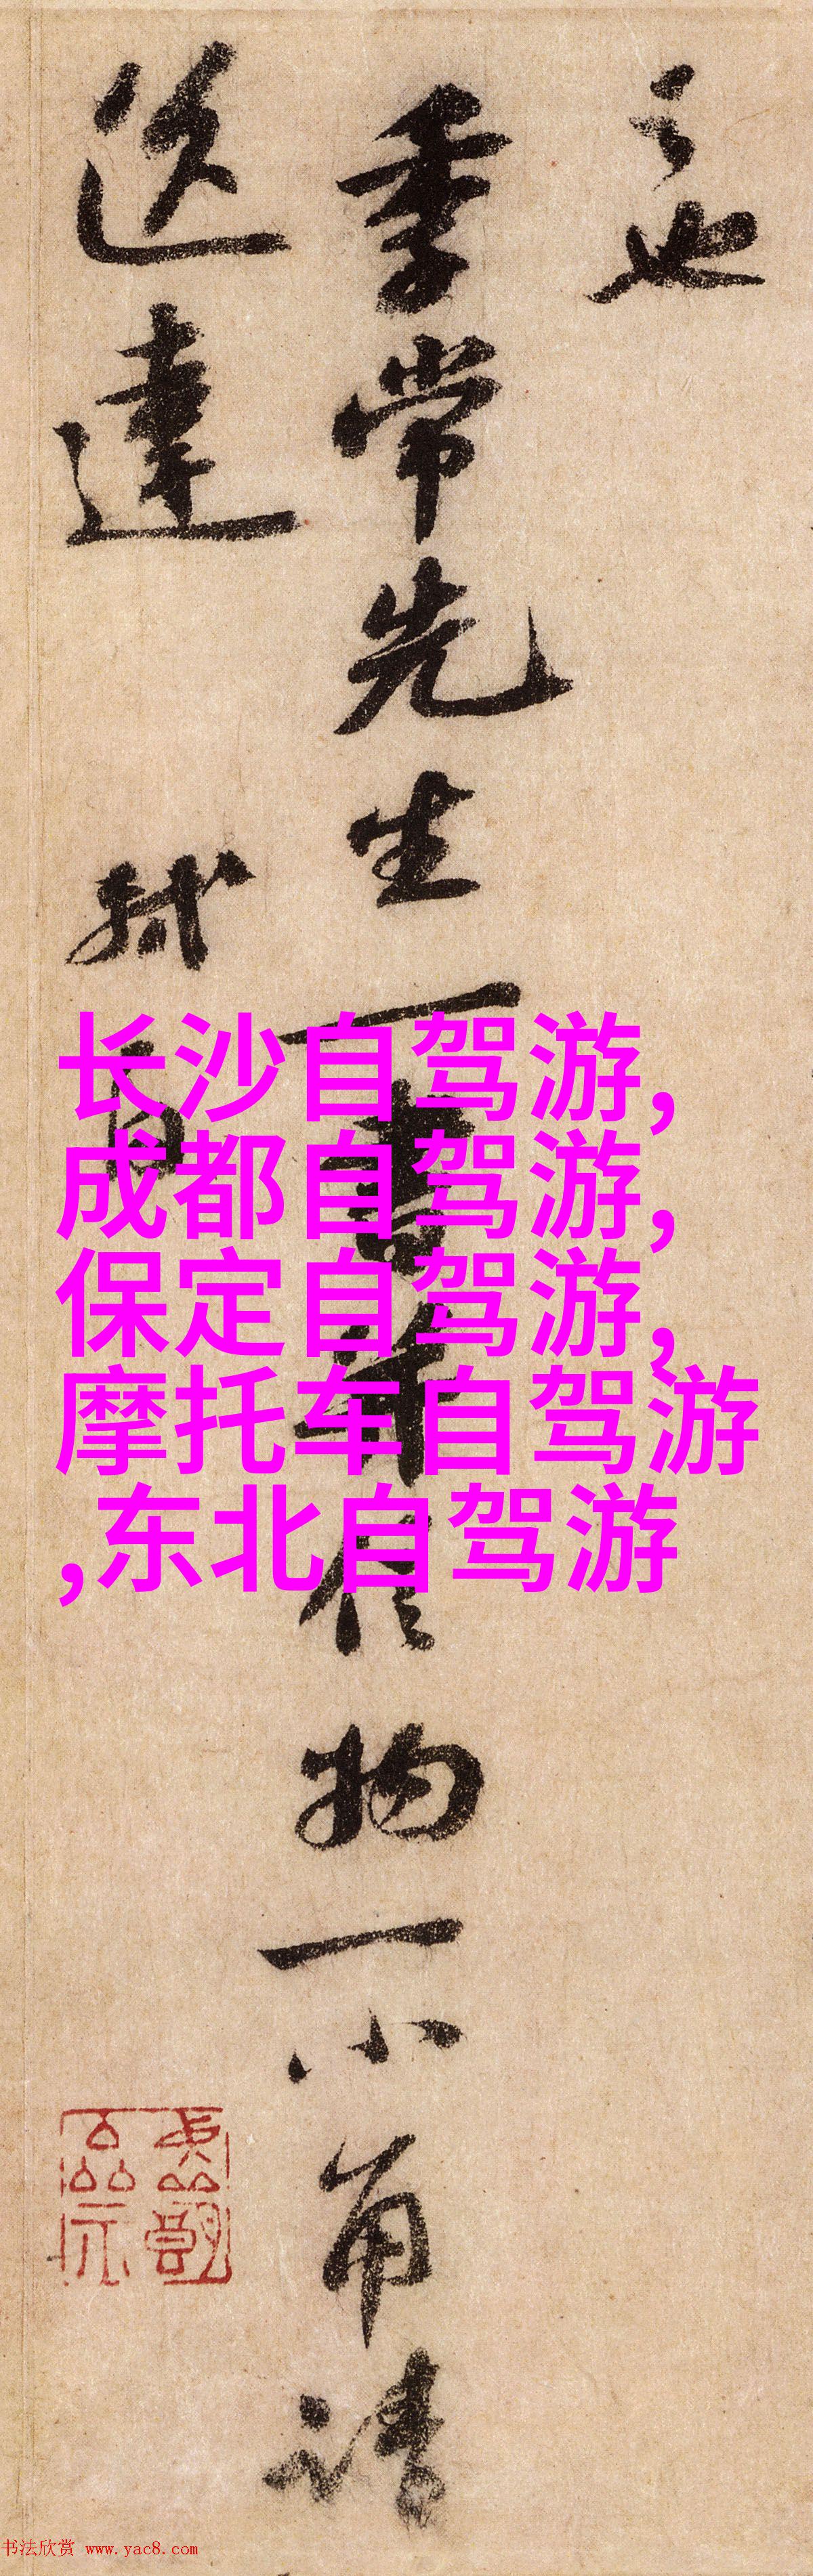 言也
季常先生一書并信物一小角請
送達 軾白
长沙自驾游,
成都自驾游,
保定自驾游,
摩托车自驾游
,东北自驾游
书法欣赏 www.yac8.com